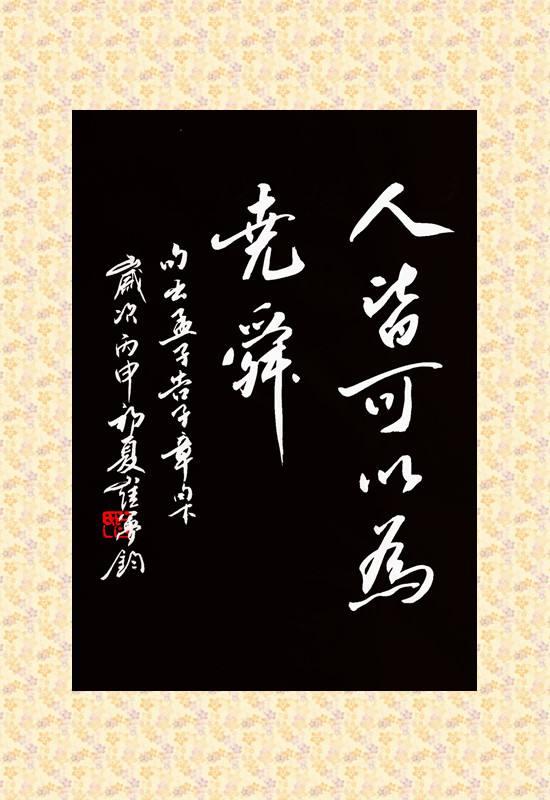 人皆可以為
堯舜
句出孟子告子章句下
歲次丙申初夏崔夢鈞